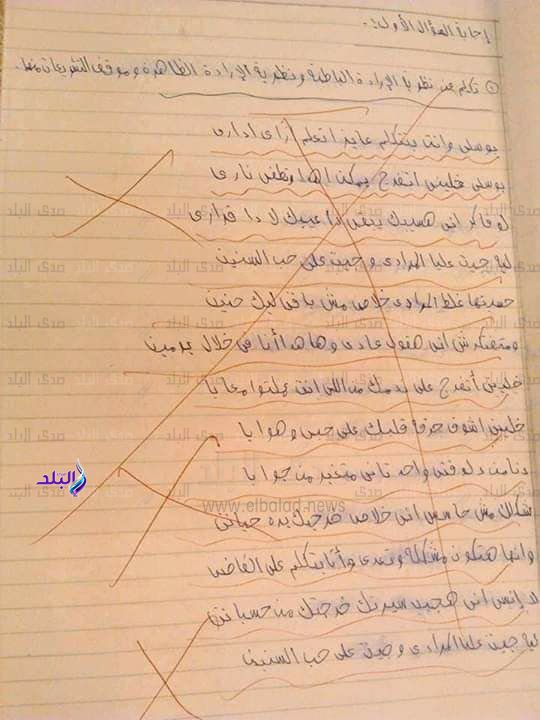 إجابة السؤال الأول :-
① تكلم عن نظرية الإرادة الباطنة ونظرية الإرادة الظاهرة وموقف التشريعات منها.
بوسلى وانت بتتكلم عايز اتعلم ازاى ادارى
بوسلى خلينى اتفرج يمكن اهدا وتطفى نارى
لو فاكر انى هسيبك يبقى دا عيبك لا دا قرارى
ليه جيت عليا المرادى وجيت على حب السنين
حسبتها غلط المرادى خلاص مش باقى ليك حنين
ومتفتكرش انى هقول عادى وهاهدا أنا فى خلال يومين
خلينى أتفرج على ندمك من اللى انت عملتوا معايا
خلينى اشوف حرقة قلبك على حبى وهوايا
دنا من دلوقتى واحد تانى متغير من جوايا
شكلك مش حاسس انى خلاص خرجتك بره حياتى
وانها هتكون مشكلة وتعدى وأنا بتكلم على الماضى
لا إنسى انى هجيب سيرتك خرجتك من حسباتى
ليه جيت عليا المرادى وجيت على حب السنين
صدى البلد
البلد
www.elbalad.news